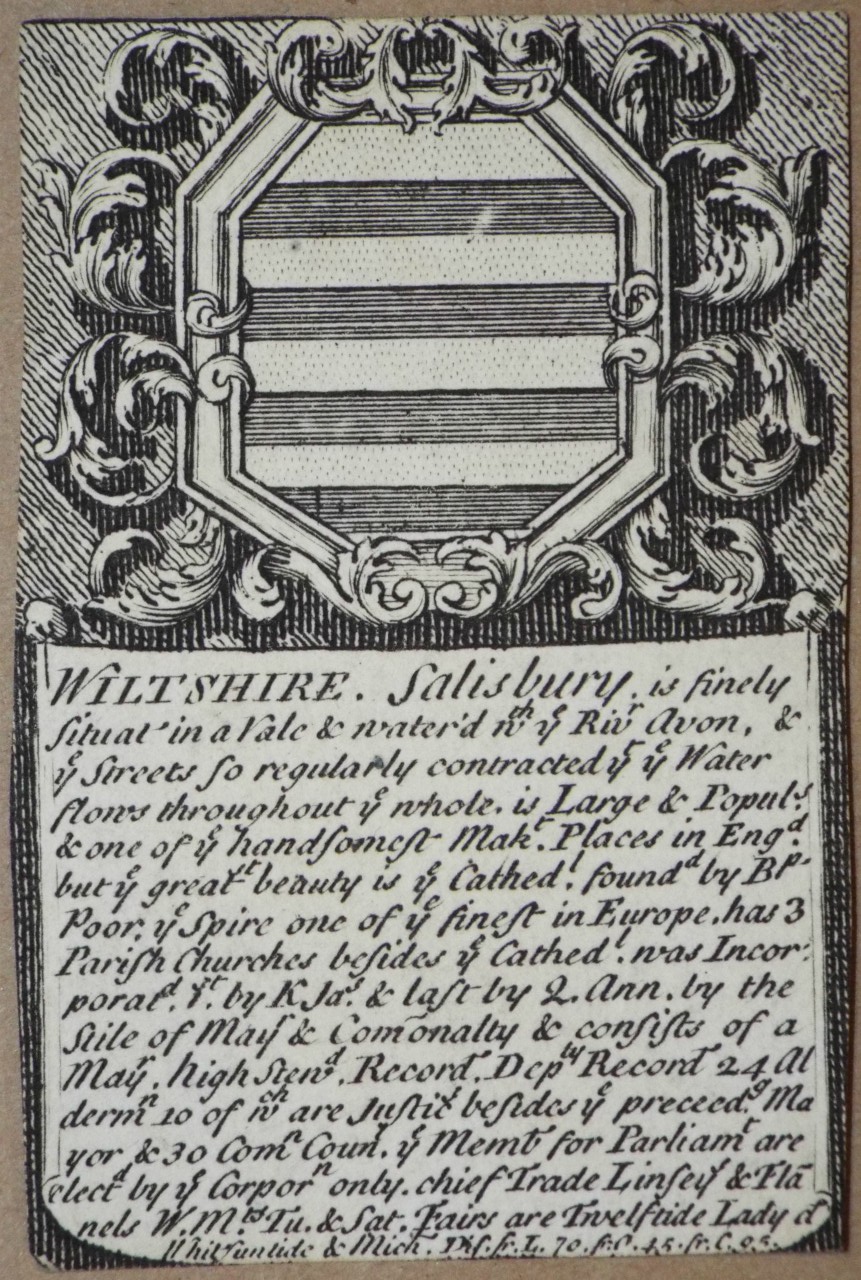 WILTSHIRE. Salisbury, is finely
Situat in a Vale & water'd wch ye Rivr Avon, &
ye Streets so regularly contracted yt ye Water
flows throughout ye whole. is Large & Populs.
& one of ye handsomest Makt. Places in Engd.
but ye greatst beauty is ye Cathedl. foundd by Bp.
Poor, ye Spire one of ye finest in Europe. has 3
Parish Churches besides ye Cathedl. was Incor:
poratd. 1st. by K Jas. & last by Q. Ann. by the
Stile of Mayr & Com̄onalty & consists of a
Mayr. high Stewd. Recordr. Depty Recordr 24 Al
dermn 10 of wch are Justics besides ye preceedg. Ma
yor & 30 Comn Coun. ye Membs for Parliamt are
electd by ye Corporn only. chief Trade Linseys & Fla
nels W. Mkts Tu. & Sat. Fairs are Twelftide Lady d
Whitsuntide & Mich. Dis. fr. L. 70. fr. O. 45. fr. C. 95.